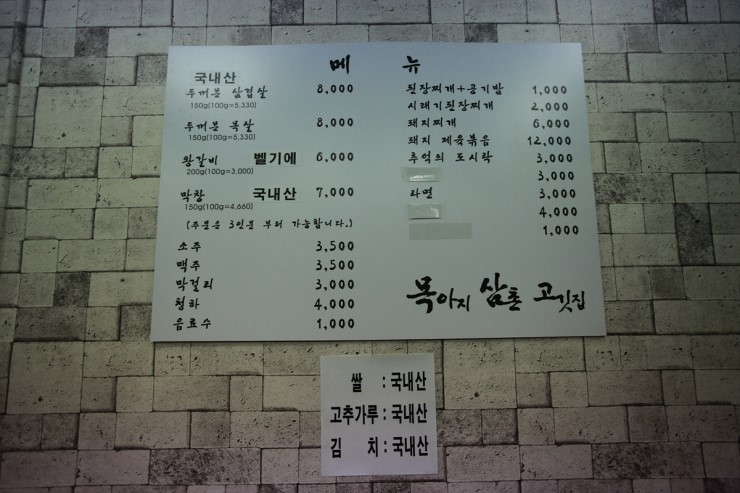 메 뉴
국내산
두꺼분 삼겹살 8,000
150g(100g=5,330)
두꺼분 목살 8,000
150g(100g=5,330)
왕갈비 벨기에 6,000
200g(100g=3,000)
막창 국내산 7,000
150g(100g=4,660)
(주문은 3인분 부터 가능합니다.)
소주 3,500
맥주 3,500
막걸리 3,000
청하 4,000
음료수 1,000
된장찌개+공기밥 1,000
시래기된장찌개 2,000
돼지찌개 6,000
돼지 제육볶음 12,000
추억의 도시락 3,000
3,000
라면 3,000
4,000
1,000
목아지 삼촌 고깃집
쌀 : 국내산
고추가루 : 국내산
김 치 : 국내산